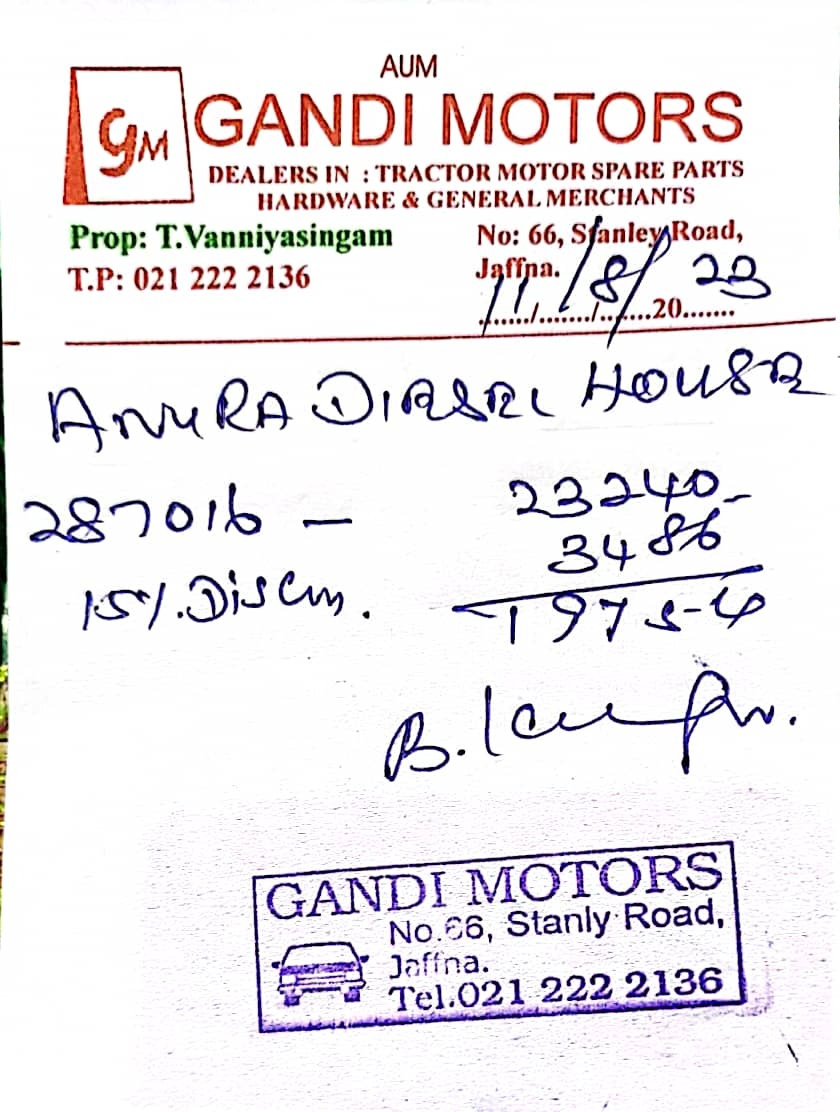 AUM
GM GANDI MOTORS
DEALERS IN : TRACTOR MOTOR SPARE PARTS
HARDWARE & GENERAL MERCHANTS
Prop: T.Vanniyasingam
No: 66, Stanley Road,
T.P: 021 222 2136
Jaffna.
11/8/2023
ANURA DIESEL HOUSE
287016 - 23240-
3486
15%. Discun. 19754
B.
GANDI MOTORS
No.66, Stanly Road,
Jaffna.
Tel.021 222 2136